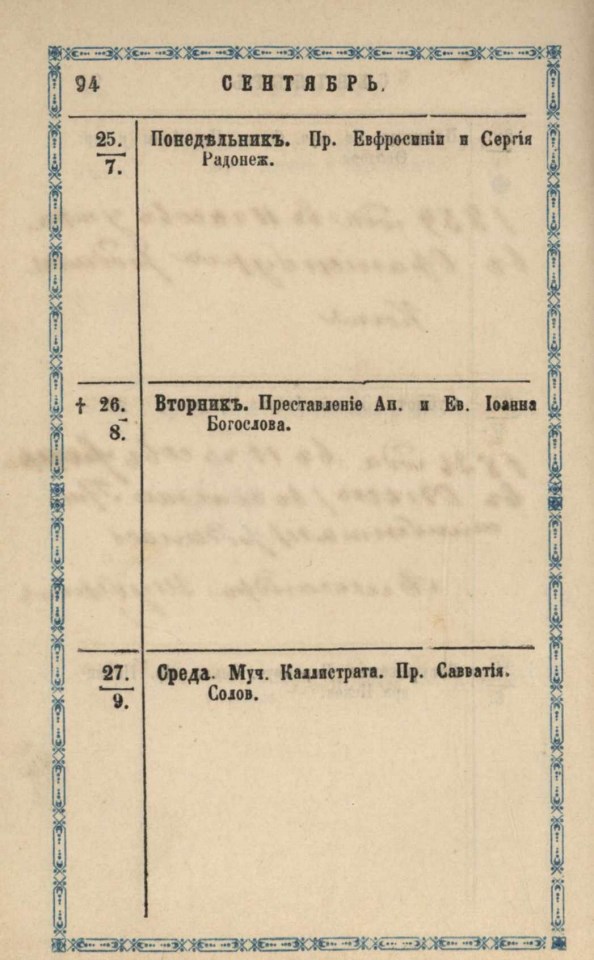 94 СЕНТЯБРЬ.
25. Понедѣльникъ. Пр. Евфросиніи и Сергія
7. Радонеж.
† 26. Вторникъ. Преставленіе Ап. и Ев. Іоанна
8. Богослова.
27. Среда. Муч. Каллистрата. Пр. Савватія.
9. Солов.